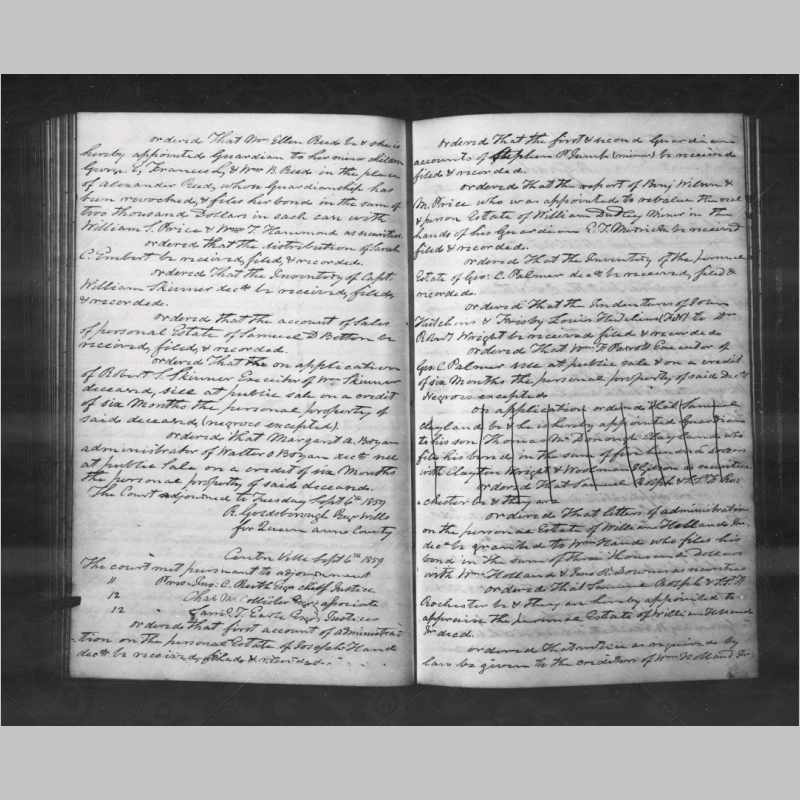 ordered That Mrs Ellen Reed be & she is
hereby appointed Guardian to his minor children
George E, Frances L, & Wm B. Reed in the place
of Alexander Reed, whose Guardianship has
been revoked, & files her bond in the sum of
two thousand Dollars in each case with
William S. Price & Wm T. Hammond as securities
ordered that the distribution of Sarah
C. Embert be received, filed, & recorded.
ordered That the Inventory of Capt.
William Skinner decd be received, filed,
& recorded.
ordered that the account of Sales
of personal Estate of Samuel D Botten be
received, filed, & recorded.
ordered That the on application
of Robert S. Skinner Executor of Wm Skinner
deceased, sell at public sale on a credit
of six Months the personal property of
said deceased (negroes excepted).
ordered That Margaret A. Bryan
administrator of Walter Bryan decd sell
at public Sale, on a credit of six Months
the personal property of said deceased.
The Court adjourned to Tuesday Sept 6th 1859
R. Goldsborough Reg Wills
for Queen Anns County
Centre Ville Sept 6th 1859
The court met pursuant to adjournment
11 Pres. Jno. C. Ruth Esqr chief Justice
12 Chas W. Esqr associate
12 Saml T. Earle Esqr Justices
ordered that first account of administra
tion on the personal Estate of Joseph Hand
decd be received, filed, & recorded.
ordered That the first & second Guardian
accounts of Stephen P. Jump (minor) be received
filed & recorded.
ordered that the report of Benj Wilson &
M. Price who was appointed to revalue the real
& person Estate of William Dudley Minor in the
hands of his Guardian E. T. be received
filed & recorded.
ordered That the Inventory of the personal
Estate of Geo: C. Palmer decd be received, filed &
recorded.
ordered That the Indenture of
Hutchens & Frisby Louis Hutchens to Dr
Robert Wright be received filed & recorded
ordered That Wm F Parrott Executor of
Geo C. Palmer sell at public sale & on a credit
of six Months the personal property of said Decd
Negroes excepted
on application ordered that Samuel
Clayland be & he is hereby appointed Guardian
to his son Thomas McDonough Clayland who
file his bond in the sum of five hundred Dollars
with Clayton Wright & Woolman Gibson as securities
ordered That Samuel Rolph & T. P. Roe
chester be & they are
ordered That letters of administration
on the personal Estate of William Holland Jr.
decd be granted to Wm Hand who files his
bond in the sum of three thousand Dollars
with Wm Holland & Jno R. Downes as securities
ordered That Samuel Rolph &
Rochester be & they are hereby appointed to
appraise the personal Estate of William Holland
Jr decd.
ordered That notice as required by
law be given to the creditors of Wm Holland Jr